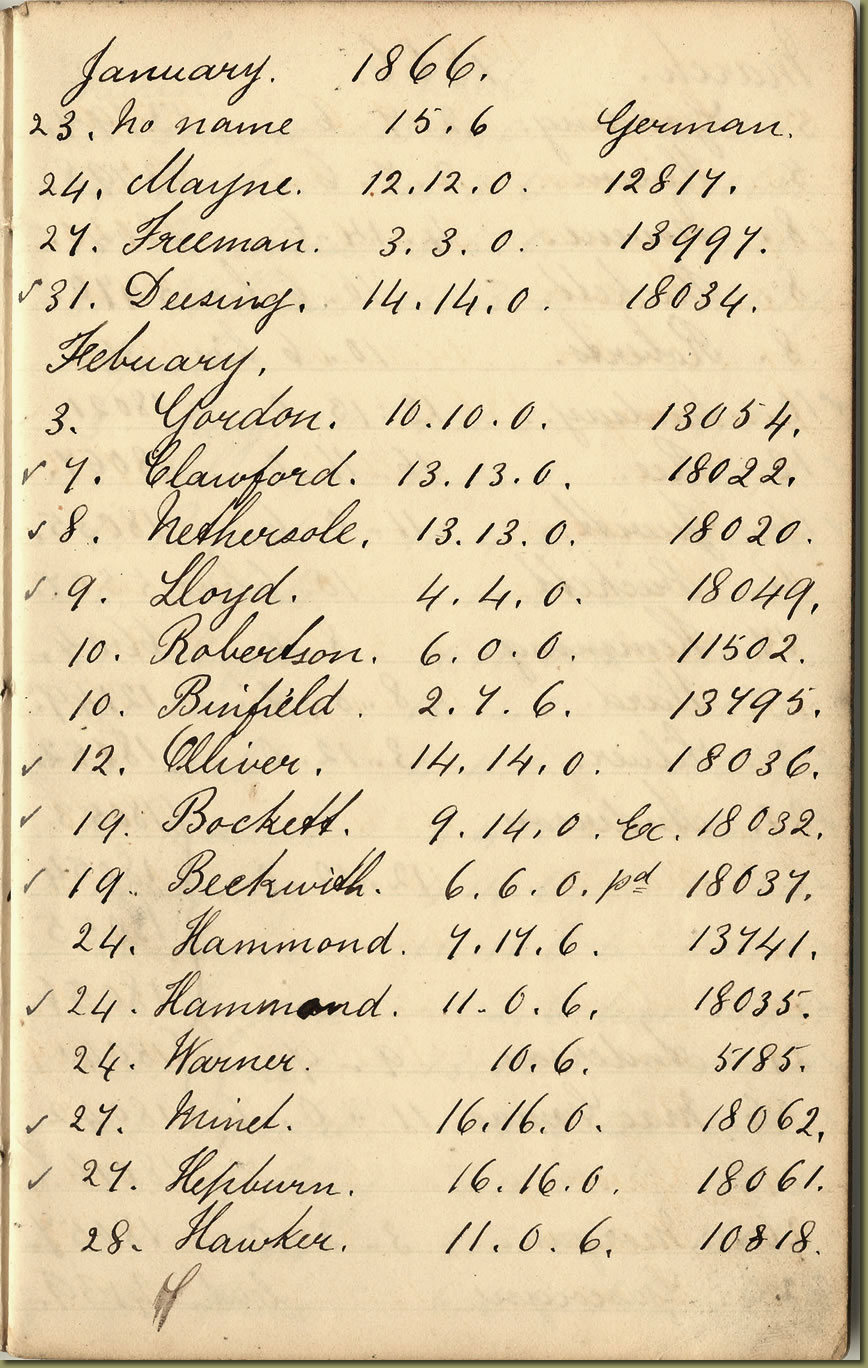 January. 1866.
23. No name 15.6 German.
24. Mayne. 12.12.0. 12817.
27. Freeman. 3.3.0. 13997.
✓ 31. Deesing. 14.14.0. 18034.
Febuary.
3. Gordon. 10.10.0. 13054.
✓ 7. Clawford. 13.13.0. 18022.
✓ 8. Nethersole. 13.13.0. 18020.
✓ 9. Lloyd. 4.4.0. 18049.
10. Robertson. 6.0.0. 11502.
10. Binfield. 2.7.6. 13795.
✓ 12. Olliver. 14.14.0. 18036.
✓ 19. Bockett. 9.14.0. Ex. 18032.
✓ 19. Beckwith. 6.6.0. pd 18037.
24. Hammond. 7.17.6. 13741.
✓ 24. Hammond. 11.0.6. 18035.
24. Warner. 10.6. 5185.
✓ 27. Minet. 16.16.0. 18062.
✓ 27. Hepburn. 16.16.0. 18061.
28. Hawker. 11.0.6. 10818.